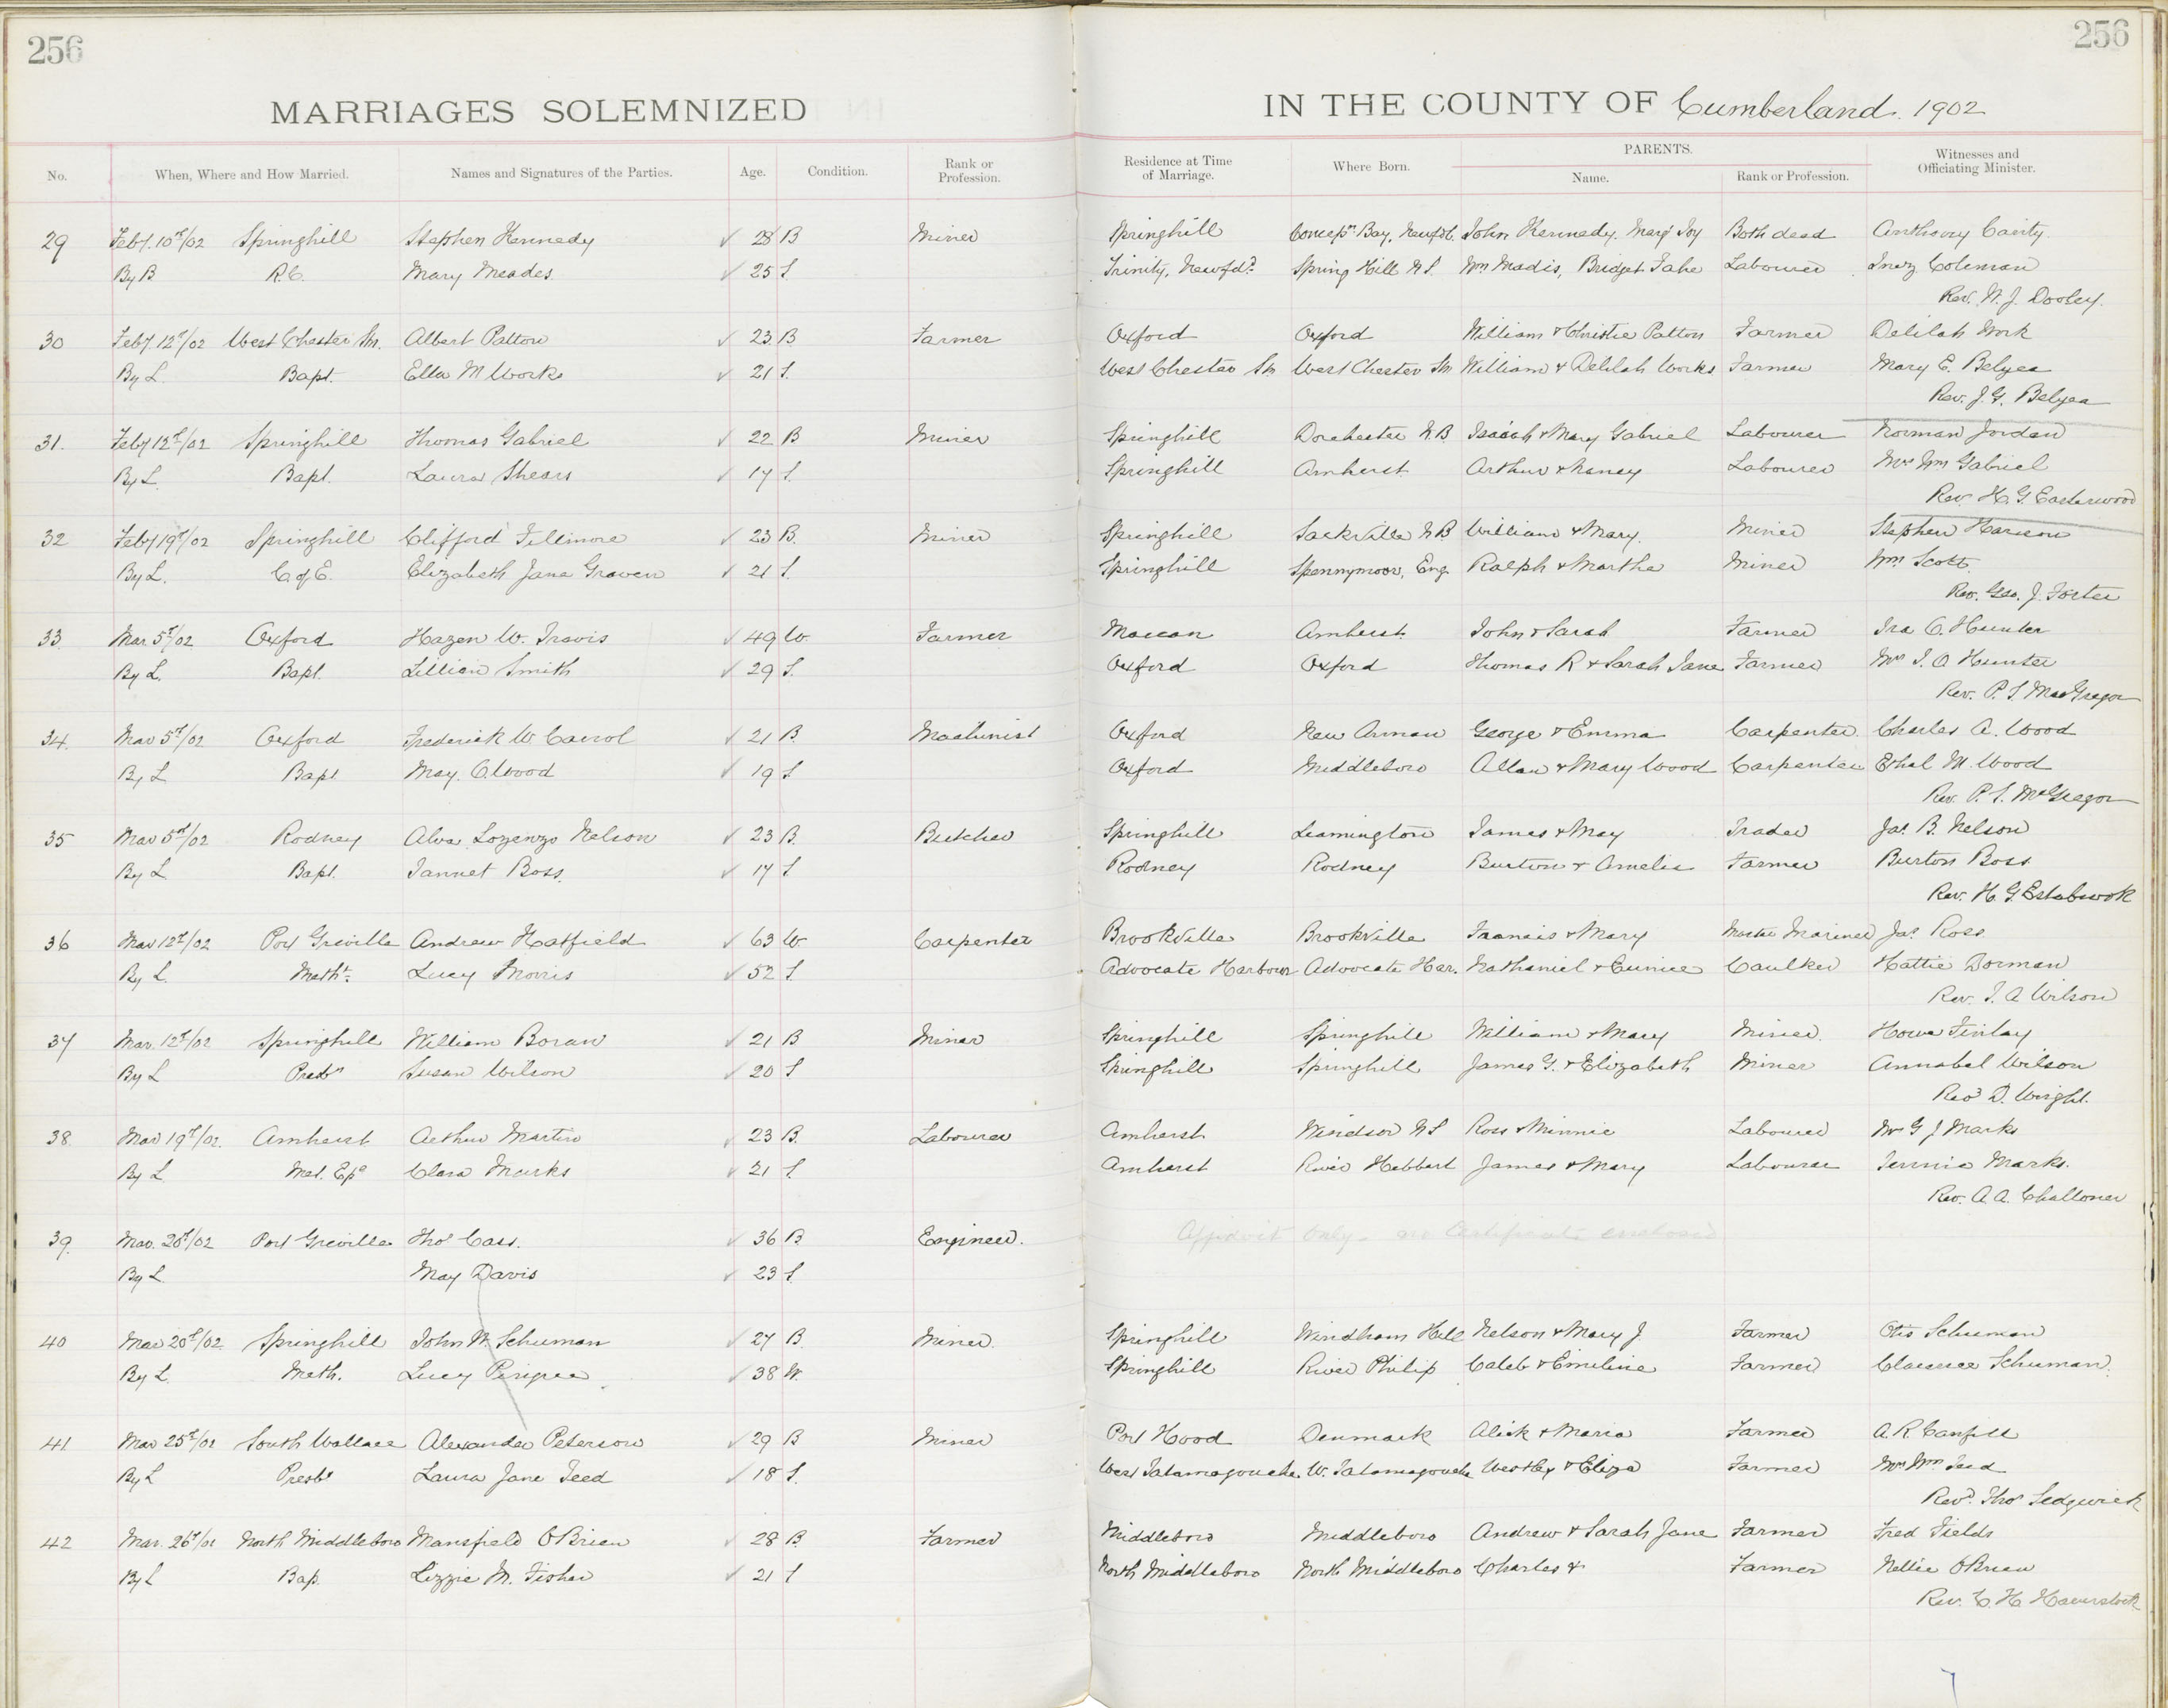 256
256
MARRIAGES SOLEMNIZED IN THE COUNTY OF Cumberland. 1902
No. When, Where and How Married. Names and Signatures of the Parties. Age. Condition. Rank or Profession. Residence at Time of Marriage. Where Born. PARENTS. Name. Rank or Profession. Witnesses and Officiating Minister.
29 Feby. 10th/02 Springhill Stephen Kennedy 28 B Miner Springhill Bay, John Kennedy. Joy Both dead Anthony
By B R.C. Mary Meades 25 S. Trinity, Newfd. Spring Hill N.S. Wm Madis, Bridget Labourer Inez Coleman
Rev. W. J. Dooley.
30 Feby. 12th/02 West Chester Stn. Albert Patton 23 B Farmer Oxford Oxford William & Christie Patton Farmer Delilah Work
By L. Bapt. Ella M Works 21 S. West Chester Stn West Chester Stn William & Delilah Works Farmer Mary E. Belyea
Rev. J. G. Belyea
31. Feby 12th/02 Springhill Thomas Gabriel 22 B Miner Springhill Dorchester N.B. Isaiah & Mary Gabriel Labourer Norman Jordan
By L. Bapt. Laura Shears 17 S. Springhill Amherst Arthur & Labourer Mrs Wm Gabriel
Rev. H. G.
32 Feby 19th/02 Springhill Clifford Fillmore 23 B. Miner Springhill Sackville N B William & Mary. Miner Stephen
By L. C. of E. Elizabeth Jane Graven 21 S. Springhill Spennymoor, Eng. Ralph & Martha Miner Wm Scott.
Rev. Geo. J. Foster
33 Mar 5th/02 Oxford Hazen W. Travis 49 W. Farmer Maccan Amherst John & Sarah Farmer Ira O. Hunter
By L. Bapt. Lillian Smith 29 S. Oxford Oxford Thomas R & Sarah Jane Farmer Mrs I. O. Hunter
Rev. P. S. MacGregor
34. Mar 5th/02 Oxford Frederick W Carrol 21 B. Machinist Oxford New Annan George & Emma Carpenter Charles A. Wood
By L Bapt May. C. Wood 19 S Oxford Middleboro Allan & Mary Wood Carpenter Ethel M. Wood
Rev. P. S. McGregor
35 Mar 5th/02 Rodney Alva Lozenzo Nelson 23 B. Butcher Springhill Leamington James & May Trader Jas. B. Nelson
By L Bapt. Jannet Boss. 17 S Rodney Rodney Burton & Amelia Farmer Burton Boss.
Rev. H. G. Estabrook
36 Mar 12th/02 Port Greville Andrew Hatfield 63 W. Carpenter Brookville Brookville Francis & Mary Master Mariner Jas. Ross
By L Metht. Lucy Morris 52 S. Advocate Harbour Advocate Har. Nathaniel & Eunice Caulker Hattie Dorman
Rev. J. A Wilson
37 Mar. 12th/02 Springhill William Boran 21 B Miner Springhill Springhill William & Mary Miner. Howe Finlay
By L Presbn Susan Wilson 20 S Springhill Springhill James G. & Elizabeth Miner Annabel Wilson
Revd D. Wright.
38. Mar 19th/02. Amherst Arthur Martin 23 B. Labourer Amherst Windsor N S Ross & Minnie Labourer Mr G J Marks
By L Met. Ep. Clara Marks 21 S. Amherst River Hebbert James & Mary Labourer Jennie Marks.
Rev. A. A. Challoner
39. Mar. 20th/02 Port Greville Thos Cass. 36 B Engineer. Affidavit only. no Certificate enclosed
By L May Davis 23 S.
40 Mar 20th/02 Springhill John W. Schuman 27 B. Miner. Springhill Windham Hill Nelson & Mary J. Farmer Otis Schuman
By L. Meth. Lucy 38 W. Springhill River Philip Caleb & Emiline Farmer Clarence Schuman.
41 Mar 25th/02 South Wallace Alexander Peterson 29 B Miner Port Hood Denmark Alick & Maria Farmer A. R
By L Presbn Laura Jane Teed 18 S. West Tatamagouche W. Tatamagouche Westley & Eliza Farmer Mrs Wm Teed
Revd. Thos Sedgwick
42 Mar. 26th/02 North Middleboro Mansfield O'Brien 28 B Farmer Middleboro Middleboro Andrew & Sarah Jane Farmer Fred Fields
By L Bap. Lizzie M. Fisher 21 S North Middleboro North Middleboro Charles & Farmer Nellie OBrien
Rev. C. H. Haverstock